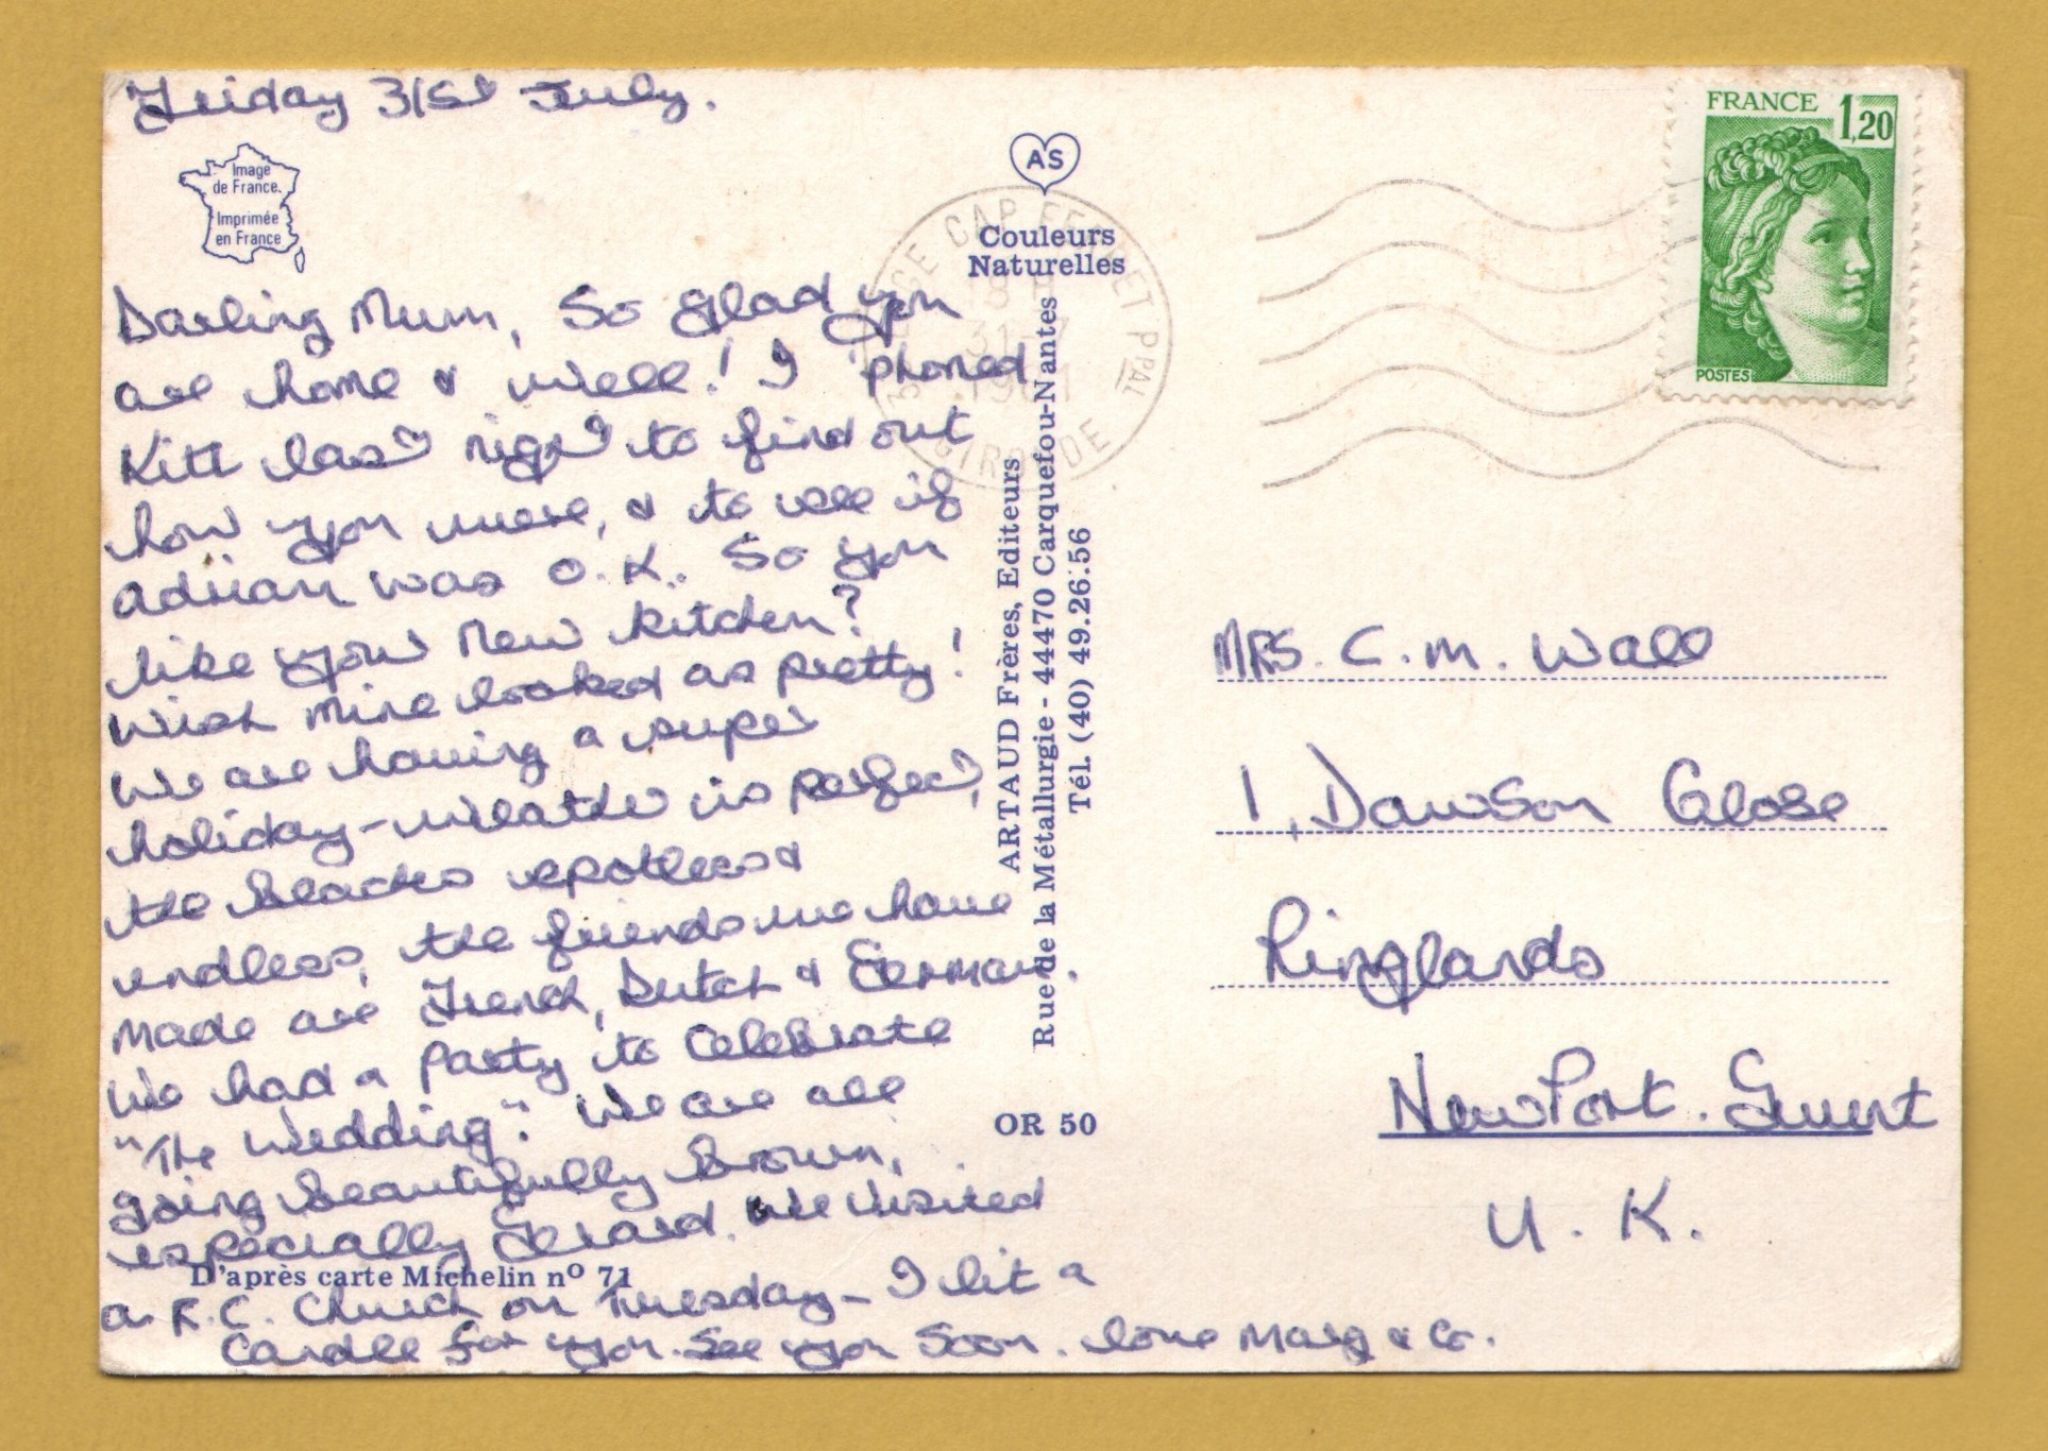 Friday 31st July.
Image
de France.
Imprimée
en France
Darling Mum, So glad you
are home & well! I 'phoned
Kitt last night to find out
how you were, & to see if
Adrian was O.K. So you
like your new kitchen?
Wish mine looked as pretty!
We are having a super
holiday - weather is perfect,
the beaches spotless &
endless, the friends we have
made are French, Dutch & German.
We had a party to celebrate
"The Wedding". We are all
going beautifully brown,
especially Gerard. We visited
a R.C. Church on Tuesday - I lit a
candle for you. See you soon. love Marg & Co.
D'après carte Michelin nº 71
AS
Couleurs
Naturelles
ARTAUD Frères, Editeurs
Rue de la Métallurgie - 44470 Carquefou-Nantes
Tél. (40) 49.26.56
OR 50
CAP FERRET PPAL
31-7
GIRONDE
FRANCE 1,20
POSTES
MRS. C. M. Wall
1, Dawson Close
Ringlands
NewPort. Gwent
U. K.